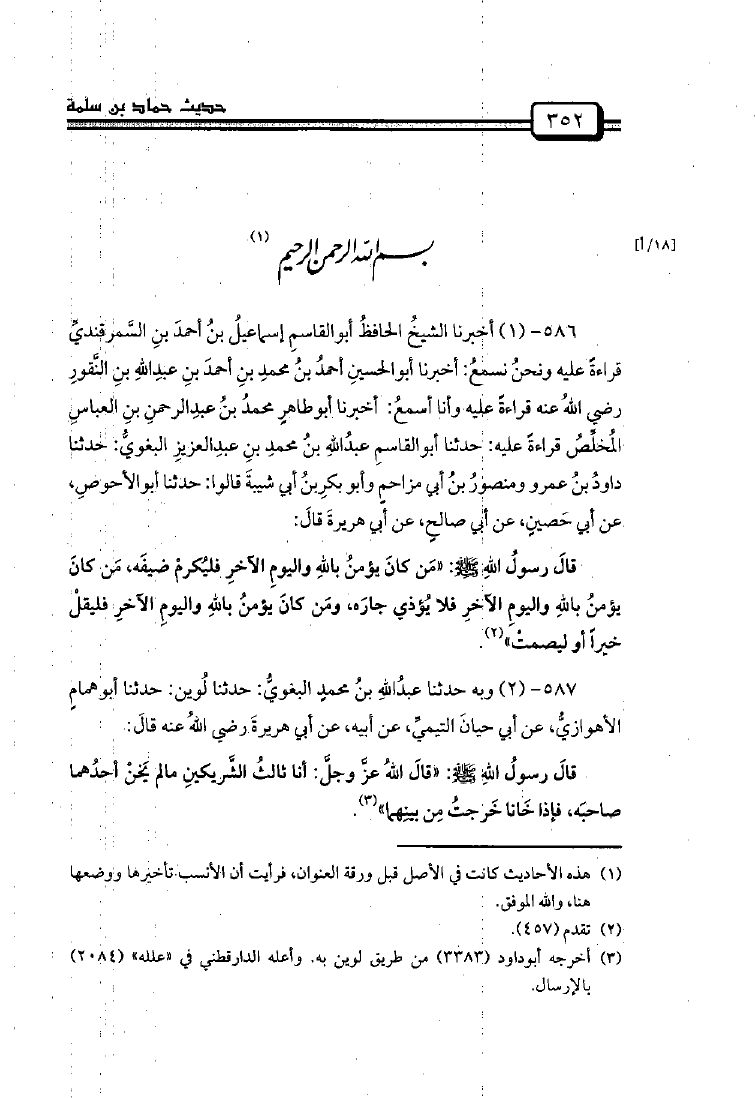 حديث حماد بن سلمة
٣٥٢
[١٨/أ]
بسم الله الرحمن الرحيم (١)
٥٨٦- (١) أخبرنا الشيخُ الحافظُ أبوالقاسمِ إسماعيلُ بنُ أحمدَ بنِ السَّمرقنديِّ
قراءةً عليه ونحنُ نسمعُ: أخبرنا أبوالحسينِ أحمدُ بنُ محمدِ بنِ أحمدَ بنِ عبدِاللهِ بنِ النَّقورِ
رضي اللهُ عنه قراءةً عليه وأنا أسمعُ: أخبرنا أبوطاهرٍ محمدُ بنُ عبدِالرحمنِ بنِ العباسِ
المُخلِّصُ قراءةً عليه: حدثنا أبوالقاسمِ عبدُاللهِ بنُ محمدِ بنِ عبدِالعزيزِ البغويُّ: حدثنا
داودُ بنُ عمرو ومنصورُ بنُ أبي مزاحمٍ وأبو بكرِ بنُ أبي شيبةَ قالوا: حدثنا أبوالأحوصِ،
عن أبي حَصينٍ، عن أبي صالحٍ، عن أبي هريرةَ قالَ:
قالَ رسولُ اللهِ ﷺ: «مَن كانَ يؤمنُ باللهِ واليومِ الآخرِ فليُكرمْ ضيفَه، مَن كانَ
يؤمنُ باللهِ واليومِ الآخرِ فلا يُؤذي جارَه، ومَن كانَ يؤمنُ باللهِ واليومِ الآخرِ فليقلْ
خيراً أو ليصمتْ»(٢).
٥٨٧- (٢) وبه حدثنا عبدُاللهِ بنُ محمدٍ البغويُّ: حدثنا لُوين: حدثنا أبوهمامٍ
الأهوازيُّ، عن أبي حيانَ التيميِّ، عن أبيه، عن أبي هريرةَ رضي اللهُ عنه قالَ:
قالَ رسولُ اللهِ ﷺ: «قالَ اللهُ عزَّ وجلَّ: أنا ثالثُ الشَّريكينِ مالم يَخنْ أحدُهما
صاحبَه، فإذا خَانا خَرجتُ مِن بينِهما»(٣).
(١) هذه الأحاديث كانت في الأصل قبل ورقة العنوان، فرأيت أن الأنسب تأخيرها ووضعها
هنا، والله الموفق.
(٢) تقدم (٤٥٧).
(٣) أخرجه أبوداود (٣٣٨٣) من طريق لوين به. وأعله الدارقطني في «علله» (٢٠٨٤)
بالإرسال.